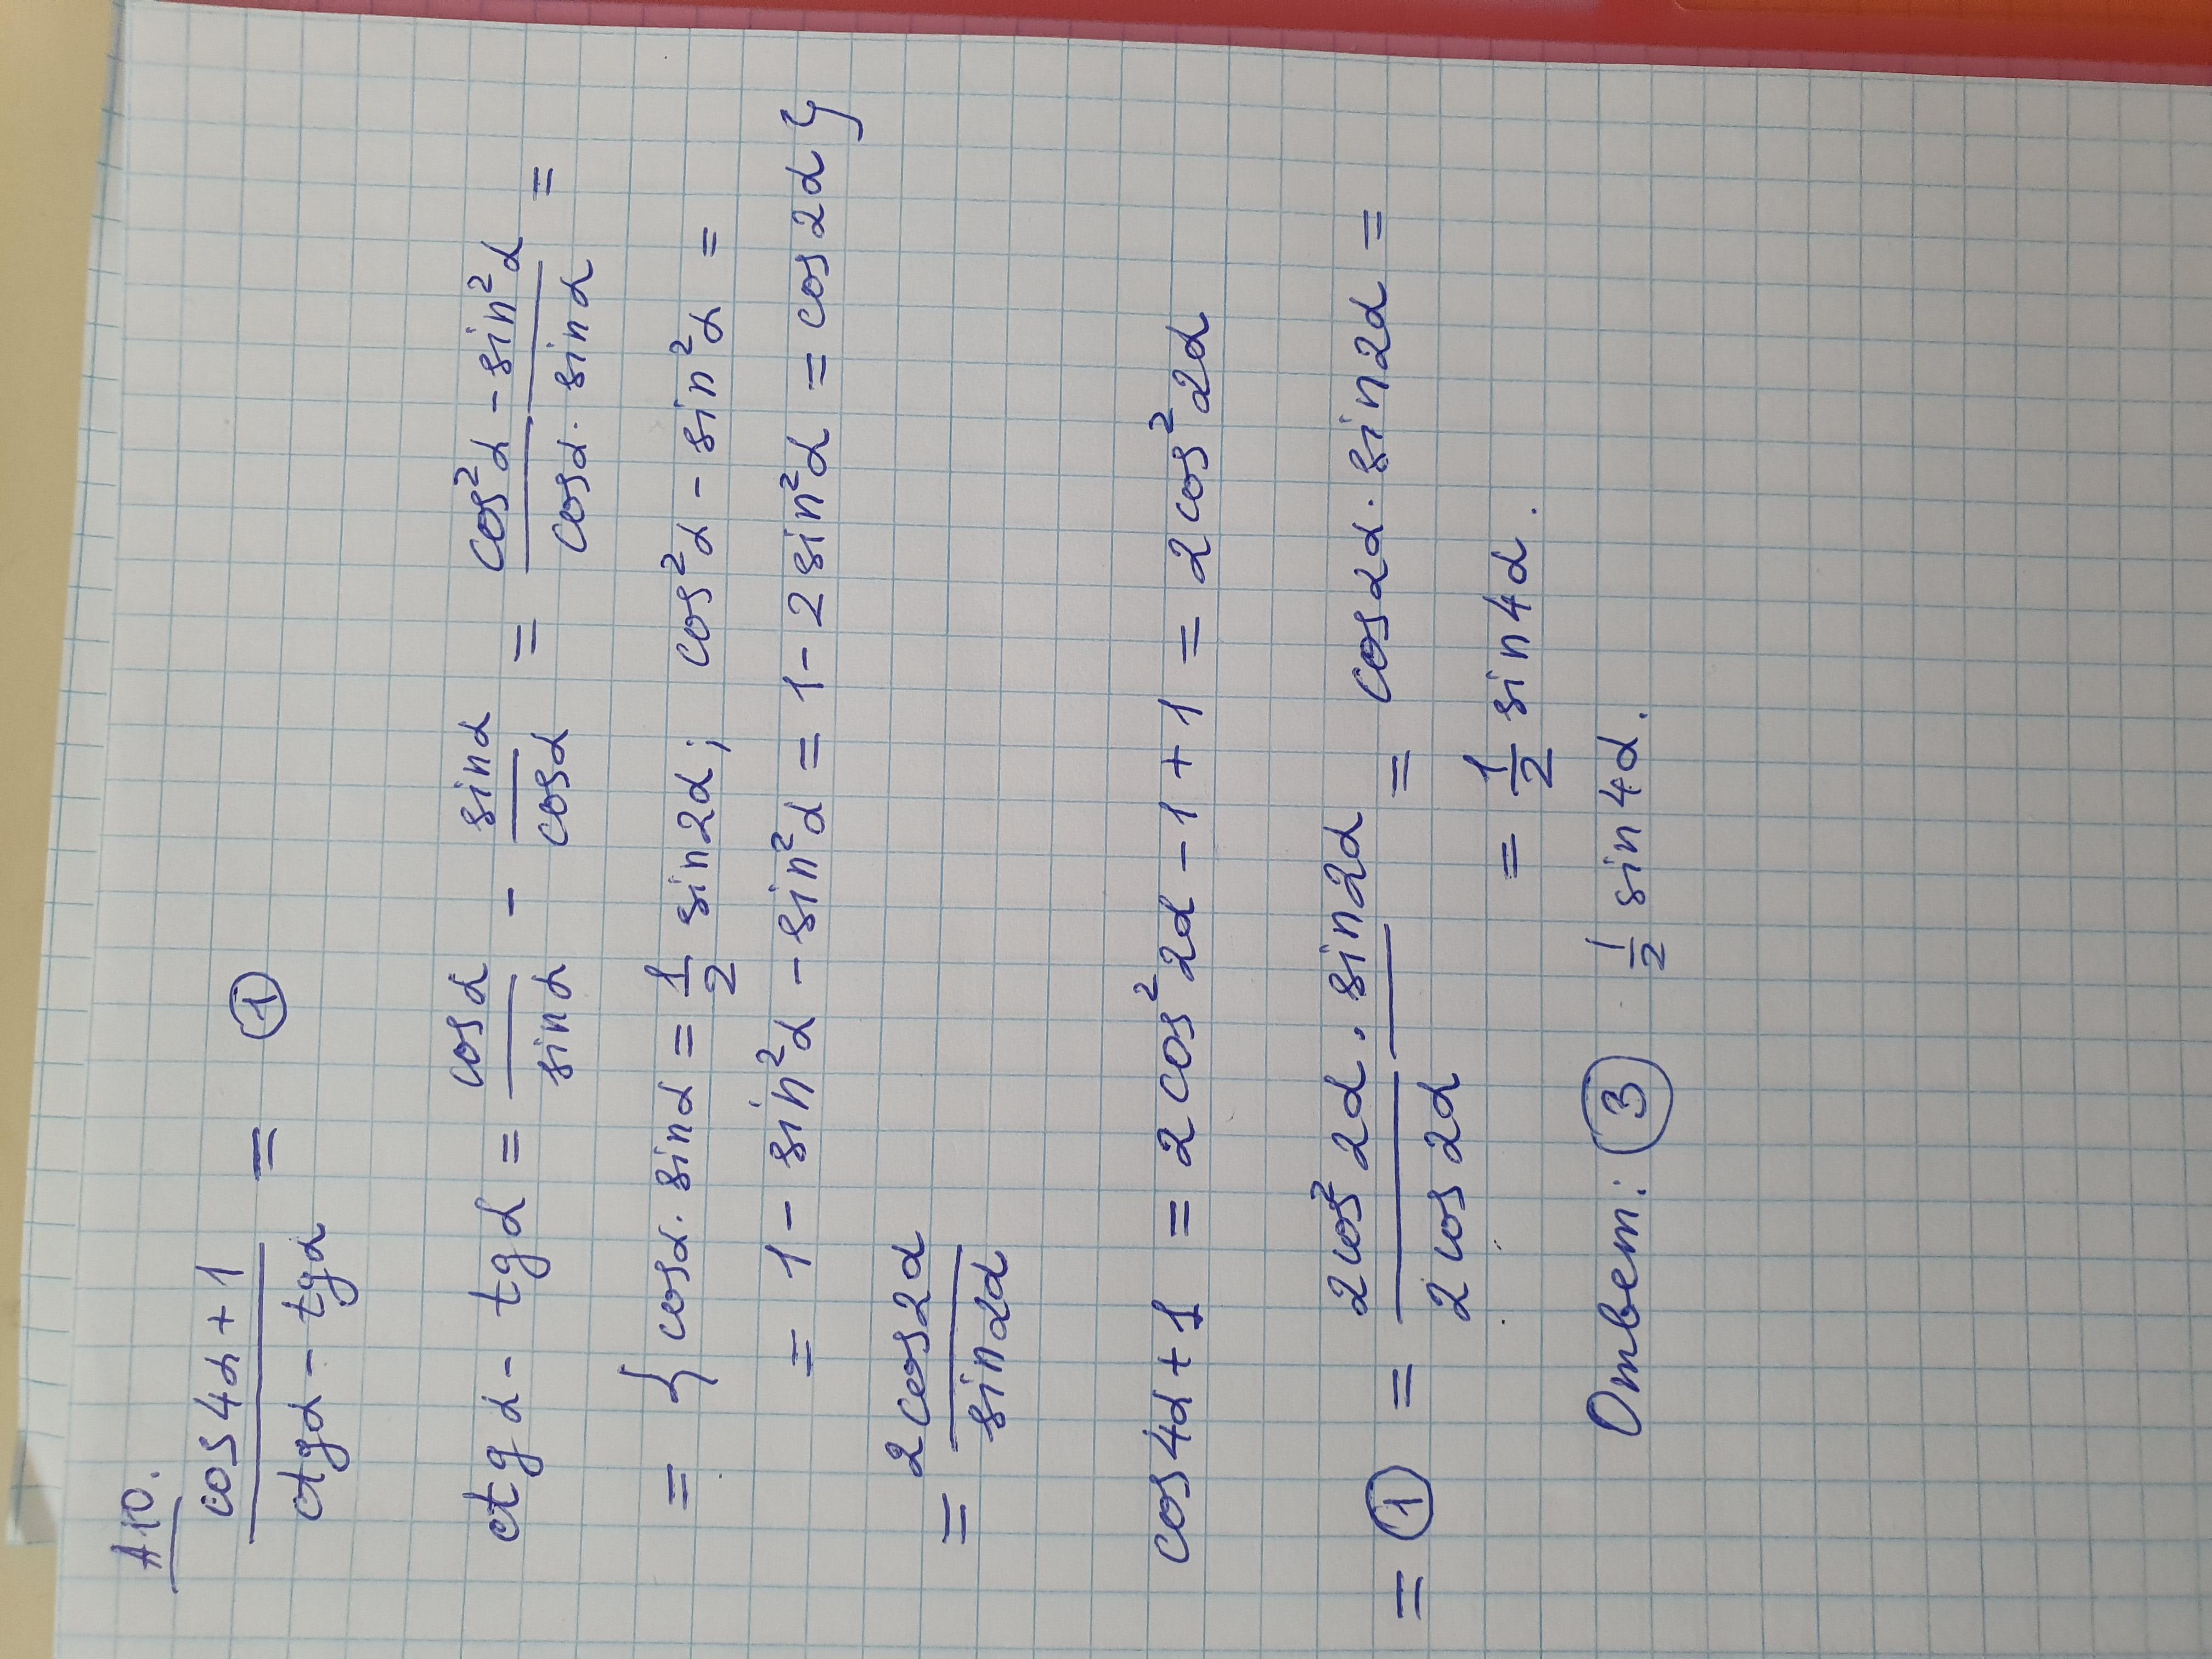 A10.
cos4α+1 / ctgα - tgα = ①
ctgα - tgα = cosα / sinα - sinα / cosα = cos²α - sin²α / cosα · sinα =
= { cosα · sinα = 1/2 sin2α; cos²α - sin²α =
= 1 - sin²α - sin²α = 1 - 2sin²α = cos2α }
= 2cos2α / sin2α
cos4α+1 = 2cos²2α - 1 + 1 = 2cos²2α
= ① = 2cos²2α · sin2α / 2cos2α = cos2α · sin2α =
= 1/2 sin4α.
Ответ: ③ 1/2 sin4α.